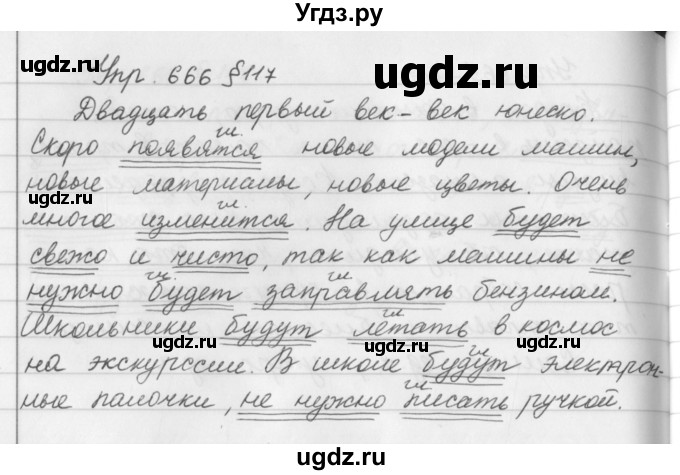 Угдз.ру
Упр. 666 §117
Двадцать первый век - век юнеско.
Скоро появятся новые модели машин,
новые материаны, новые цветы. Очень
многое изменится. На улице будет
свежо и чисто, так как машины не
нужно будет заправлять бензином.
Школьники будут летать в космос
на экскурсии. В школе будут электрон-
ные палочки, не нужно писать ручкой.
ugdz.ru
ugdz.ru
ugdz.ru
ugdz.ru
ugdz.ru
ugdz.ru
ugdz.ru
ugdz.ru
ugdz.ru
Угдз.ру